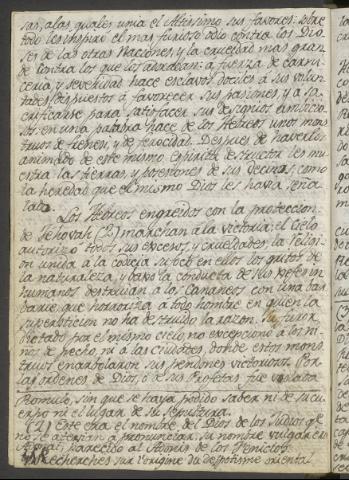 sas, a las quales unia el Altisimo sus favores: sobre
todo les inspiró el mas furioso odio contra los Dio-
ses de las otras Naciones, y la crueldad mas gran
de contra los que los adoraban: a fuerza de carni-
ceria, y severidad hace esclavos dociles á sus volun
tades, dispuestos á favorecer sus pasiones, y a sa-
crificarse para satisfacer sus designios ambicio
sos: en una palabra hace de los Hebreos unos mons
truos de y de ferocidad. Despues de haverlos
animado de este mismo Espiritu destructor les mu
estra las tierras, y posesiones de sus vecinos, como
la heredad que el mismo Dios les havia seña
lado.
Los Hebreos engreidos con la proteccion
de Jehovah (2) marchan á la victoria; el Cielo
autorizó todos sus excesos, y crueldades; la Religi-
on unida a la codicia sufocó en ellos los gritos de
la naturaleza, y baxo la conducta de sus Xefes in
humanos destruian á los Cananeos con una bar
barie que horroriza á todo hombre en quien la
supersticion no ha destruido la razon. Su furor
dictado por el mismo cielo, no excepciono á los ni-
ños de pecho, ni á las ciudades, donde estos mons
truos enarbolaron sus pendones victoriosos. Por
las ordenes de Dios, ó de sus Profetas fue violada
Romulo, sin que se haya podido saber ni de su cu
erpo ni el lugar de su Sepultura.
(2) Este era el nombre del Dios de los Judios q.e
no se atrevian á pronunciar. Su nombre vulgar era
Adonai, parecido al Adonis de los Fenicios.
Recherches sur l'origine du despotisme oriental